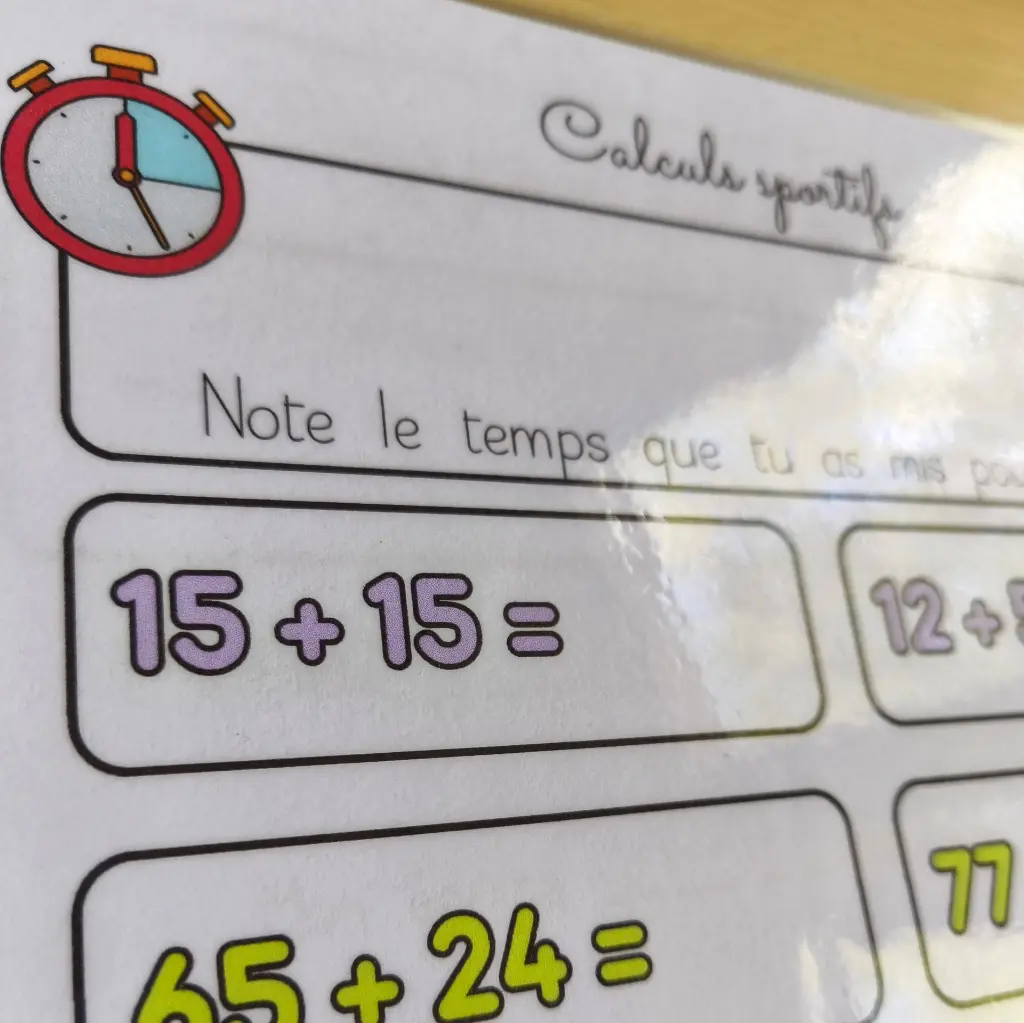 Calculs sportifs
Note le temps que tu as mis
15 + 15 =
12 +
65 + 24 =
77